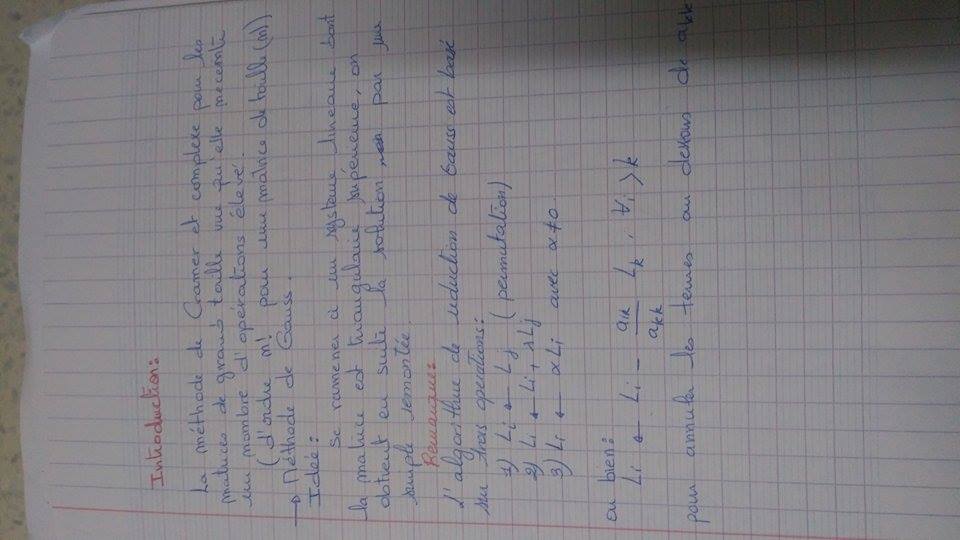 Introduction:
La méthode de Cramer et complexe pour les
matrices de grand taille vue qu'elle necessite
un nombre d'opérations élevé.
(d'ordre n! pour une matrice de taille (n))
→ Méthode de Gauss.
Idée:
se ramener à un systeme lineaire dont
la matrice est triangulaire supérieure, on
obtient en suite la solution par une
simple remontée
Remarque:
L'algorithme de reduction de Gauss est basé
sur trois operations:
1) Li ← Lj (permutation)
2) Li ← Li + λLj
3) Li ← αLi avec α≠0
ou bien:
Li ← Li - aik/akk Lk, ∀i>k
pour annuler les termes au dessous de akk